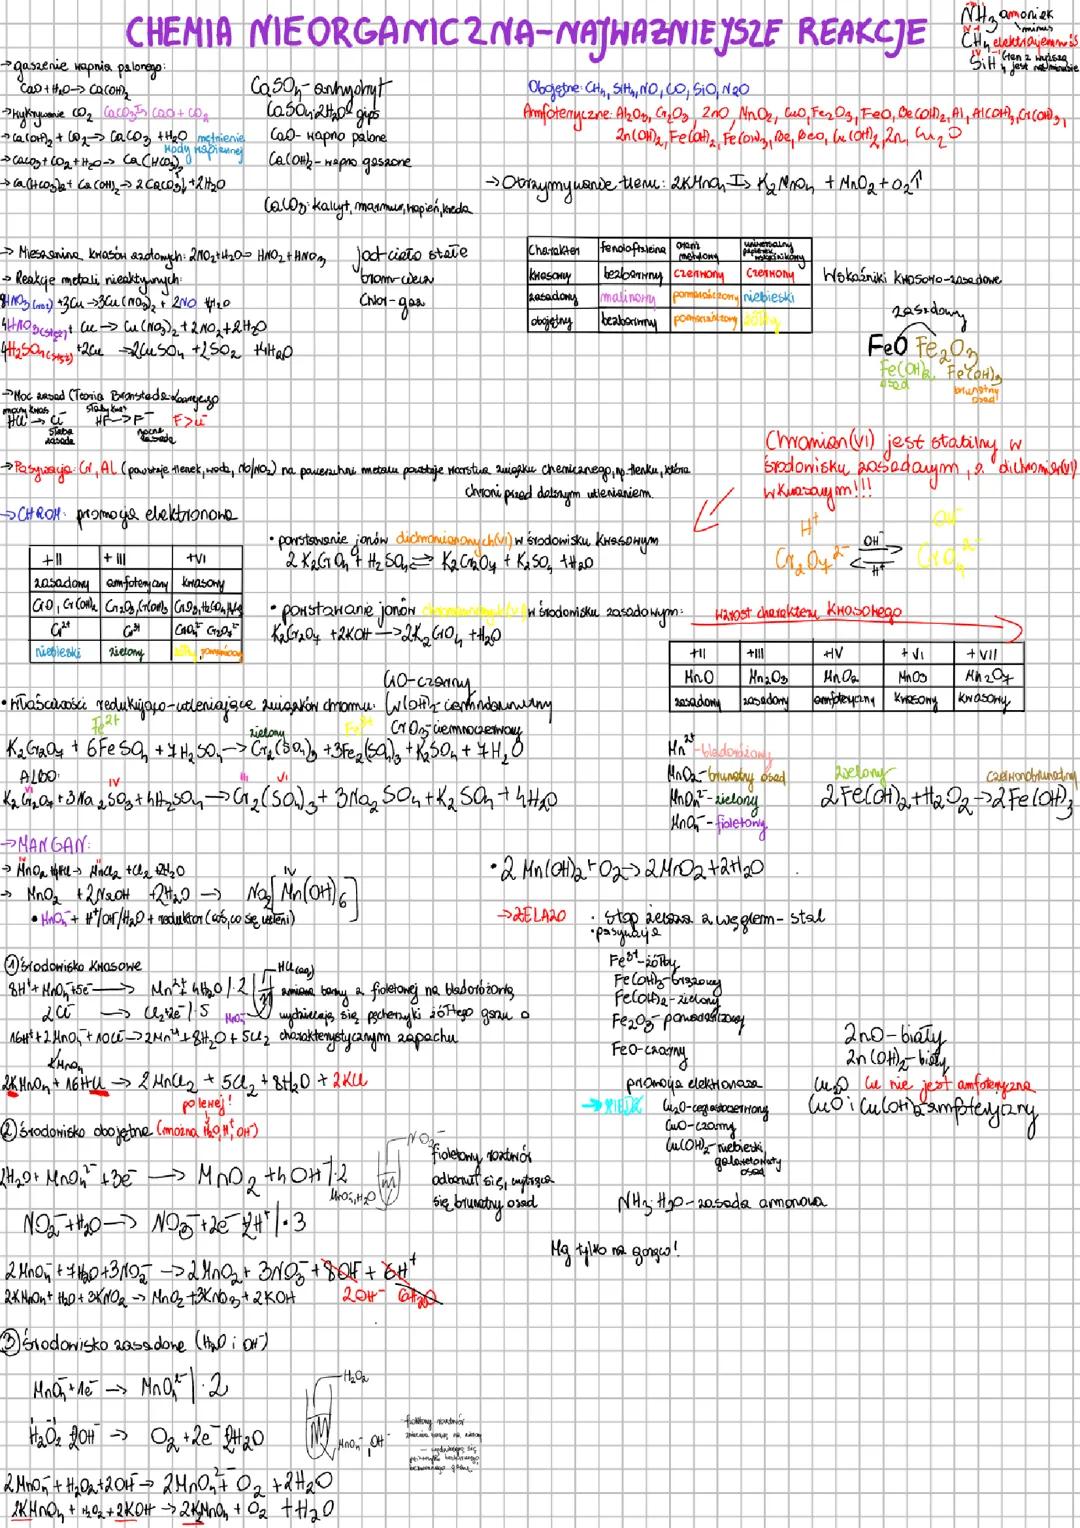 CHEMIA NIEORGANICZNA-NAJWAŻNIEJSZE REAKCJE
NH₃ amoniak
minus
CH₄ elektroujemność
SiH₄ (ten z wyższą jest na minusie
→ gaszenie wapnia palonego:
CaO+H₂O→Ca(OH)₂
→ Wykrywanie CO₂ CaCO₃ T→ CaO+CO₂
→ Ca(OH)₂ + CO₂ → CaCO₃ + H₂O mętnienie wody wapiennej
→ CaCO₃+CO₂+H₂O → Ca(HCO₃)₂
→ Ca(HCO₃)₂+Ca(OH)₂→2CaCO₃↓+2H₂O
CaSO₄-anhydryt
CaSO₄·2H₂O-gips
CaO-wapno palone
Ca(OH)₂-wapno gaszone
CaCO₃: kalcyt, marmur, wapień, kreda
Obojętne: CH₄, SiH₄, NO, CO, SiO, N₂O
Amfoteryczne: Al₂O₃, Cr₂O₃, ZnO, MnO₂, CuO, Fe₂O₃, FeO, Be(OH)₂, Al, Al(OH)₃, Cr(OH)₃,
Zn(OH)₂, Fe(OH)₂, Fe(OH)₃, Be, BeO, Cu(OH)₂, Zn, Cu₂O
→ Otrzymywanie tlenu: 2KMnO₄ T→ K₂MnO₄ + MnO₂ + O₂↑
→ Mieszanina kwasów azotowych: 2NO₂+H₂O→ HNO₂+HNO₃
→ Reakcje metali nieaktywnych:
8HNO₃(roz) +3Cu→3Cu(NO₃)₂ + 2NO 4H₂O
4HNO₃(stęż)+ Cu→ Cu(NO₃)₂+2NO₂+2H₂O
4H₂SO₄(stęż)+2Cu →2CuSO₄ +2SO₂ +4H₂O
jod-ciało stałe
brom-ciecz
chlor-gaz
Charakter fenoloftaleina oranż metylowy uniwersalny papierek wskaźnikowy
kwasowy bezbarwny czerwony czerwony
zasadowy malinowy pomarańczowy niebieski
obojętny bezbarwny pomarańczowy żółty
Wskaźniki kwasowo-zasadowe
zasadowy
FeO Fe₂O₃
Fe(OH)₂ Fe(OH)₃
osad brunatny osad
→ Moc zasad (Teoria Brønsteda-Lowry'ego
mocny kwas słaby kwas
HCl → Cl⁻ HF→F⁻ F>Cl⁻
słaba zasada mocna zasada
→ Pasywacja: Cr, Al (powstaje tlenek, woda, NO/NO₂) na powierzchni metalu powstaje warstwa związku chemicznego, np. tlenku, która
chroni przed dalszym utlenieniem
Chromian(VI) jest stabilny w
środowisku zasadowym, a dichromian(VI)
w kwasowym!!!
→ CHROM: promocja elektronowa
+II +III +VI
zasadowy amfoteryczny kwasowy
CrO, Cr(OH)₂ Cr₂O₃, Cr(OH)₃ CrO₃, H₂CrO₄
Cr²⁺ Cr³⁺ CrO₄²⁻ Cr₂O₇²⁻
niebieski zielony żółty, pomarańczowy
• powstawanie jonów dichromianowych(VI) w środowisku kwasowym
2 K₂CrO₄ + H₂SO₄ ⇌ K₂Cr₂O₇ + K₂SO₄ +H₂O
• powstawanie jonów chromianowych(VI) w środowisku zasadowym:
K₂Cr₂O₇ +2KOH→2K₂CrO₄ +H₂O
H⁺ OH⁻
Cr₂O₇²⁻ OH⁻ ⇌ H⁺ CrO₄²⁻
wzrost charakteru kwasowego
+II +III +IV +VI +VII
MnO Mn₂O₃ MnO₂ MnO₃ Mn₂O₇
zasadowy zasadowy amfoteryczny kwasowy kwasowy
CrO-czarny
• właściwości redukująco-utleniające związków chromu:
CrO₃-ciemnoczerwony
Fe²⁺ zielony Fe³⁺
K₂Cr₂O₇ + 6FeSO₄ + 7H₂SO₄→Cr₂(SO₄)₃ +3Fe₂(SO₄)₃ + K₂SO₄ + 7H₂O
ALBO:
VI IV III VI
K₂Cr₂O₇+3Na₂SO₃+4H₂SO₄→Cr₂(SO₄)₃+ 3Na₂SO₄+K₂SO₄+4H₂O
Mn²⁺-bladoróżowy
MnO₂-brunatny osad
MnO₄²⁻-zielony
MnO₄⁻-fioletowy
zielony czerwonobrunatny
2Fe(OH)₂+H₂O₂→2Fe(OH)₃
→ MANGAN:
→ MnO₂ +4HCl→ MnCl₂ +Cl₂ +2H₂O
→ MnO₂ +2NaOH +2H₂O → Na₂[Mn(OH)₆]
IV
• MnO₄⁻+ H⁺/OH⁻/H₂O + reduktor (coś, co się utleni)
• 2 Mn(OH)₂+O₂→2MnO₂+2H₂O
→ŻELAZO
• Stop żelaza z węglem- stal
• pasywacja
Fe³⁺-żółty
Fe(OH)₃-brązowy
Fe(OH)₂-zielony
FeO-czarny
promocja elektronowa
①Środowisko kwasowe
8H⁺+MnO₄⁻+5e⁻→ Mn²⁺+4H₂O /·2
2Cl⁻ → Cl₂+2e⁻/·5
16H⁺+2MnO₄⁻+10Cl⁻→2Mn²⁺+8H₂O+5Cl₂
HCl(aq)
MnO₄⁻
zmiana barwy z fioletowej na bladoróżową
wydzielają się pęcherzyki żółtego gazu o
charakterystycznym zapachu
KMnO₄
2KMnO₄+16HCl → 2MnCl₂ + 5Cl₂ +8H₂O + 2KCl
polewej!
ZnO-biały
Zn(OH)₂-biały
Cu₂O Cu nie jest amfoteryczna
CuO i Cu(OH)₂-amfoteryczny
→MIEDŹ
Cu₂O-ceglastoczerwony
CuO-czarny
Cu(OH)₂-niebieski, galaretowaty osad
②Środowisko obojętne (można H₂O, H⁺, OH⁻)
2H₂O+ MnO₄⁻ +3e⁻ → MnO₂ +4OH⁻/·2
NO₂⁻+H₂O→ NO₃⁻+2e⁻+2H⁺/·3
NO₂⁻
MnO₄⁻, H₂O
fioletowy roztwór
odbarwił się, wytrąca
się brunatny osad
2MnO₄⁻+7H₂O+3NO₂⁻→2MnO₂+3NO₃⁻+8OH⁻+6H⁺
2OH⁻ 6H₂O
2KMnO₄+ H₂O+3KNO₂→ MnO₂+3KNO₃+2KOH
NH₃·H₂O-zasada amonowa
Mg tylko na gorąco!
③Środowisko zasadowe (H₂O i OH⁻)
MnO₄⁻+1e⁻→ MnO₄²⁻/·2
H₂O₂ 2OH⁻ → O₂+2e⁻ 2H₂O
H₂O₂
MnO₄⁻, OH⁻
fioletowy roztwór
2MnO₄⁻+H₂O₂+2OH⁻→2MnO₄²⁻+O₂+2H₂O
2KMnO₄+H₂O₂+2KOH→2K₂MnO₄+O₂ +H₂O